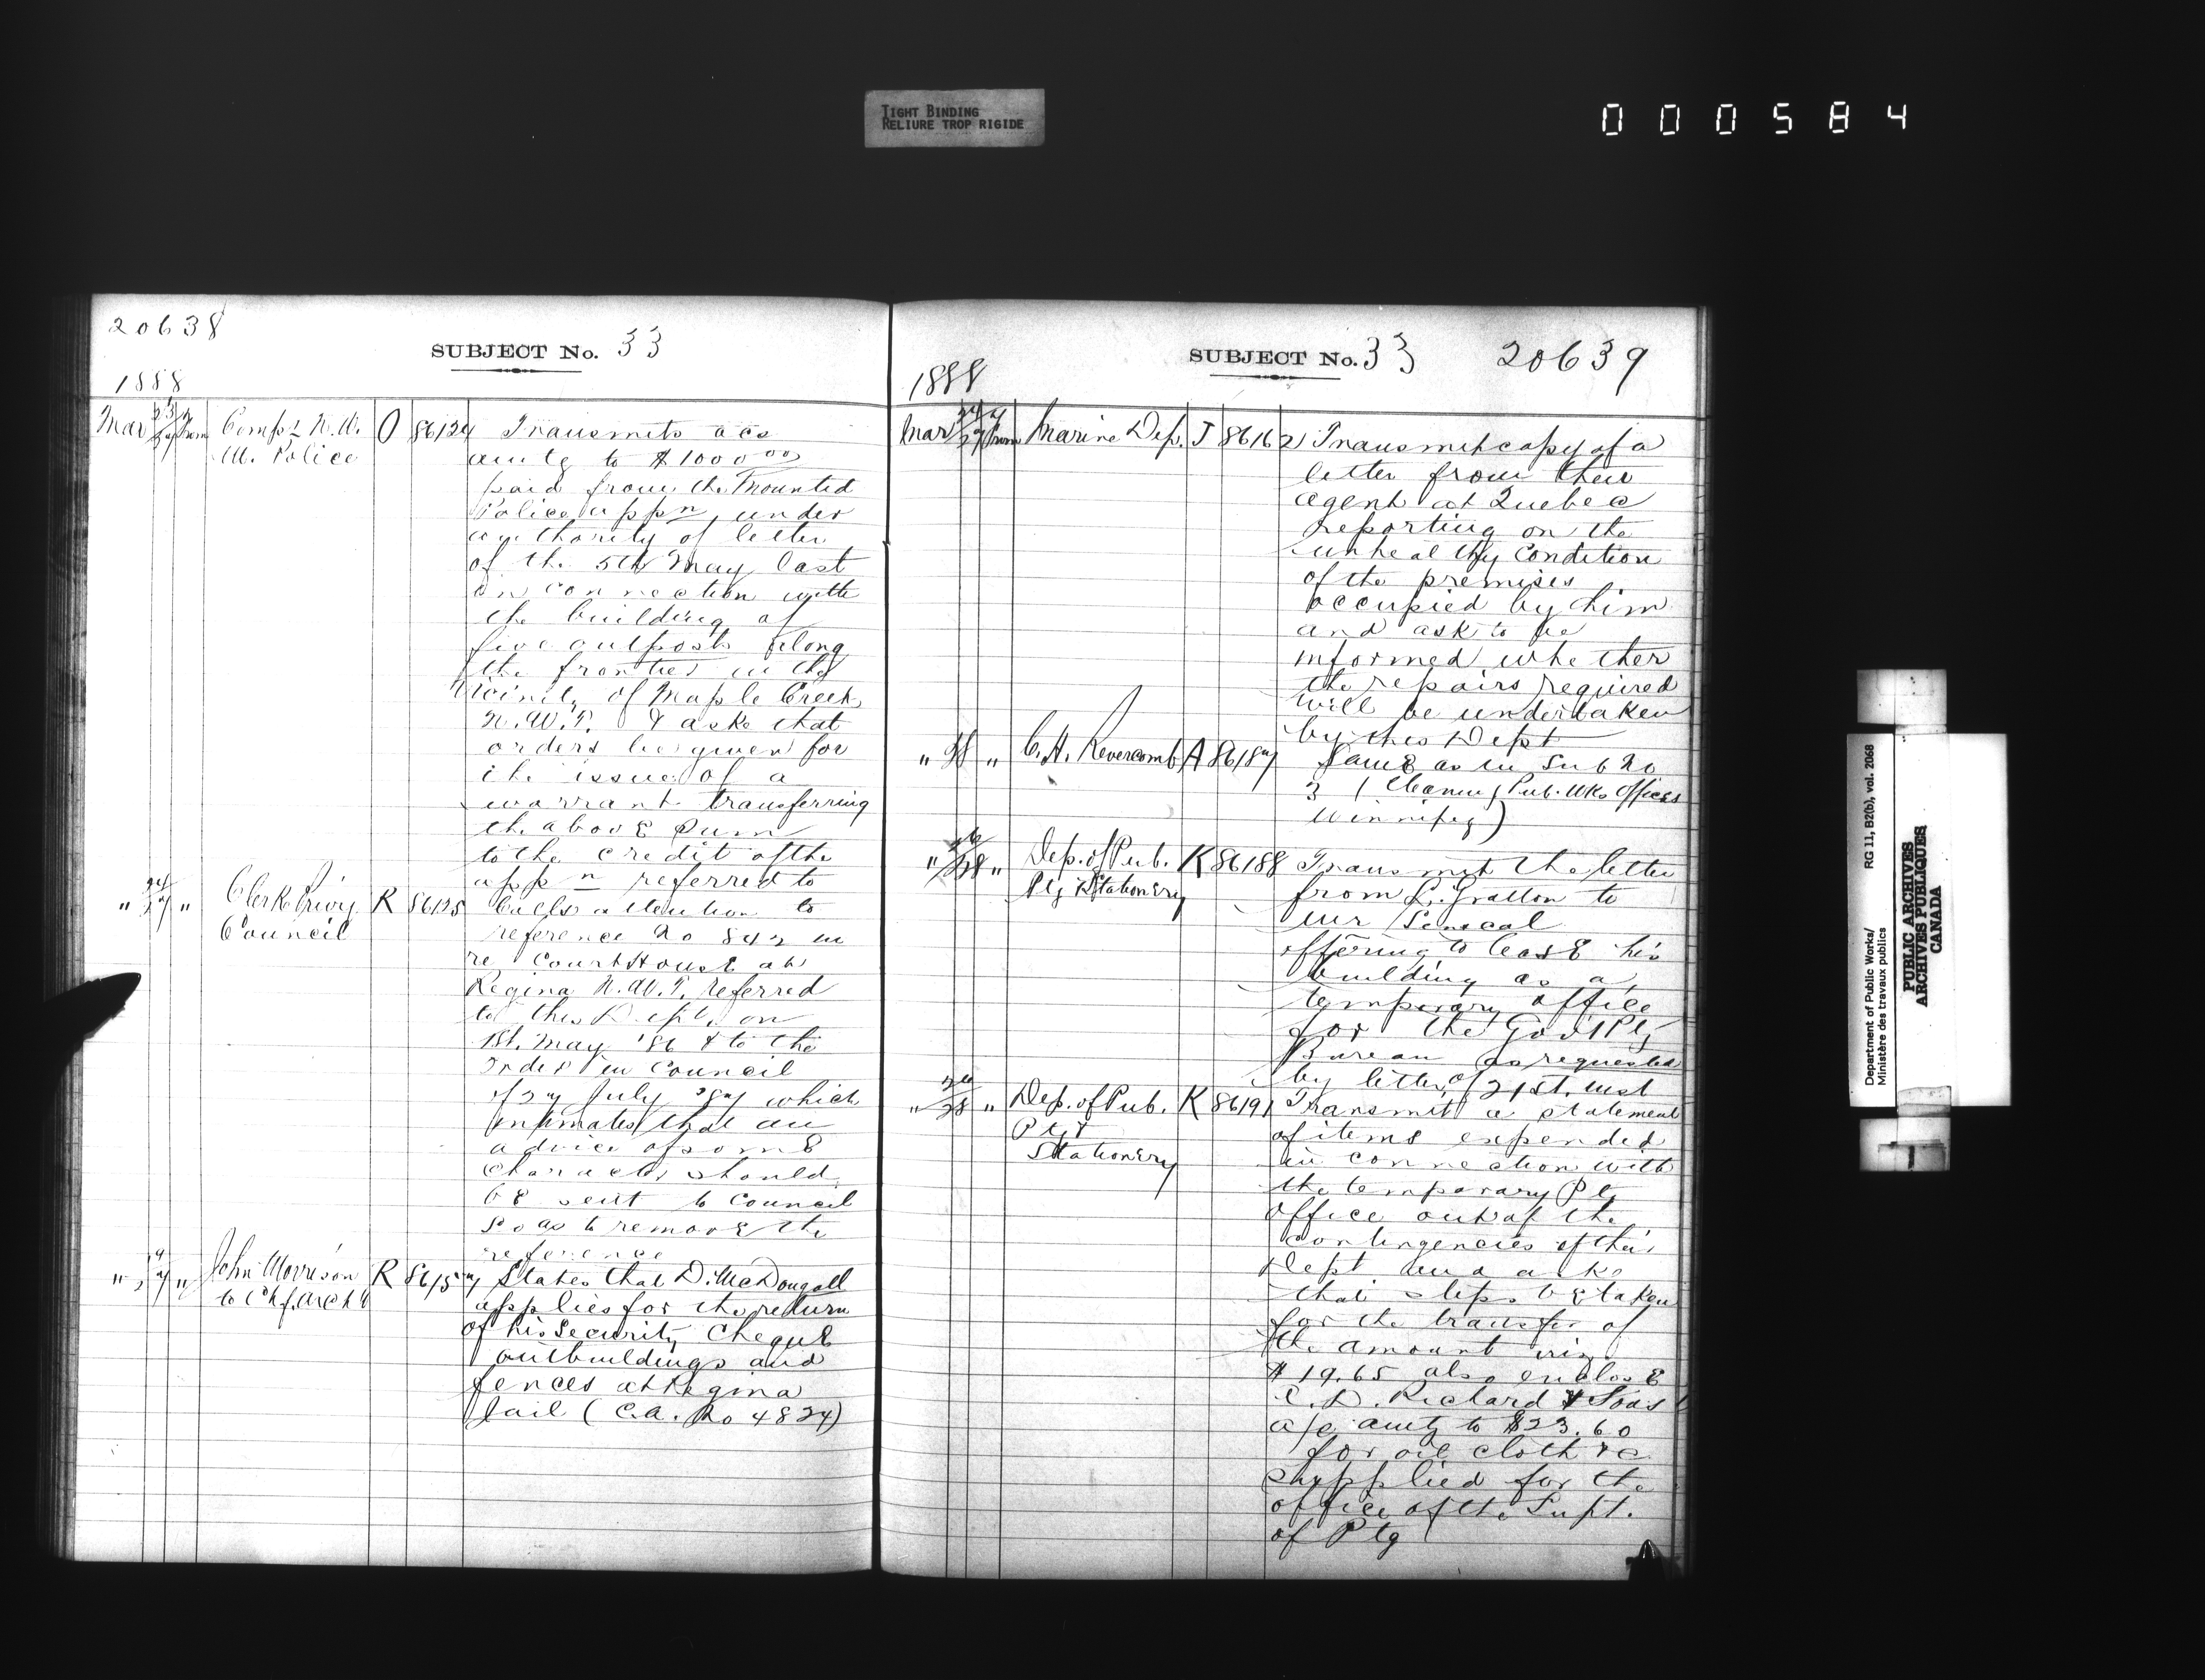 TIGHT BINDING
RELIURE TROP RIGIDE
000584
20638
SUBJECT No. 33
1888
Mar 23/27 from Compt N.W. M. Police O 86124 Transmits acs
amtg to $1000.00
paid from the Mounted
Police appn, under
authority of letter
of the 5th May last
in connection with
the building of
five outposts along
the frontier in the
Vicinity of Maple Creek
N.W.T. & asks that
orders be given for
the issue of a
warrant transferring
the above sum
to the credit of the
appn referred to
" 24/27 " Clerk Privy Council R 86125 Calls attention to
reference No 842 in
re Court House at
Regina N.W.T. referred
to this Dept. on
1st. May '86 & to the
Order in Council
of 27 July '87 which
intimates that an
advice of some
character should
be sent to Council
so as to remove the
reference
" 27 " John Morrison to Chf. Archt R 86157 States that D. McDougall
applies for the return
of his Security Cheque
outbuildings and
fences at Regina
Jail (C.A. No 4824)
SUBJECT No. 33 20639
1888
Mar 24/27 from Marine Dep. J 86162 Transmit copy of a
letter from their
agent at Quebec
reporting on the
unhealthy condition
of the premises
occupied by him
and ask to be
informed whether
the repairs required
will be undertaken
by this Dept
" 28 " C. H. Revercomb A 86187 Same as in Sub No
3 (Cleaning Pub. Wks Offices
Winnipeg)
" 26/28 " Dep. of Pub. Ptg & Stationery K 86188 Transmit the letter
from L. Gratton to
Mr Senecal
offering to lease his
building as a
temporary office
for the Govt Ptg
Bureau as requested
by letter of 21st. inst
" 26/28 " Dep. of Pub. Ptg & Stationery K 86191 Transmit a statement
of items expended
in connection with
the temporary Ptg
Office out of the
contingencies of their
Dept and ask
that steps be taken
for the transfer of
the amount viz.
$19.65 also enclose
D. Richard & Sons
a/c amtg to $23.60
for oil cloth &c
supplied for the
office of the Supt.
of Ptg
Department of Public Works/ RG 11, B2(b), vol. 2068
Ministère des travaux publics
PUBLIC ARCHIVES
ARCHIVES PUBLIQUES
CANADA